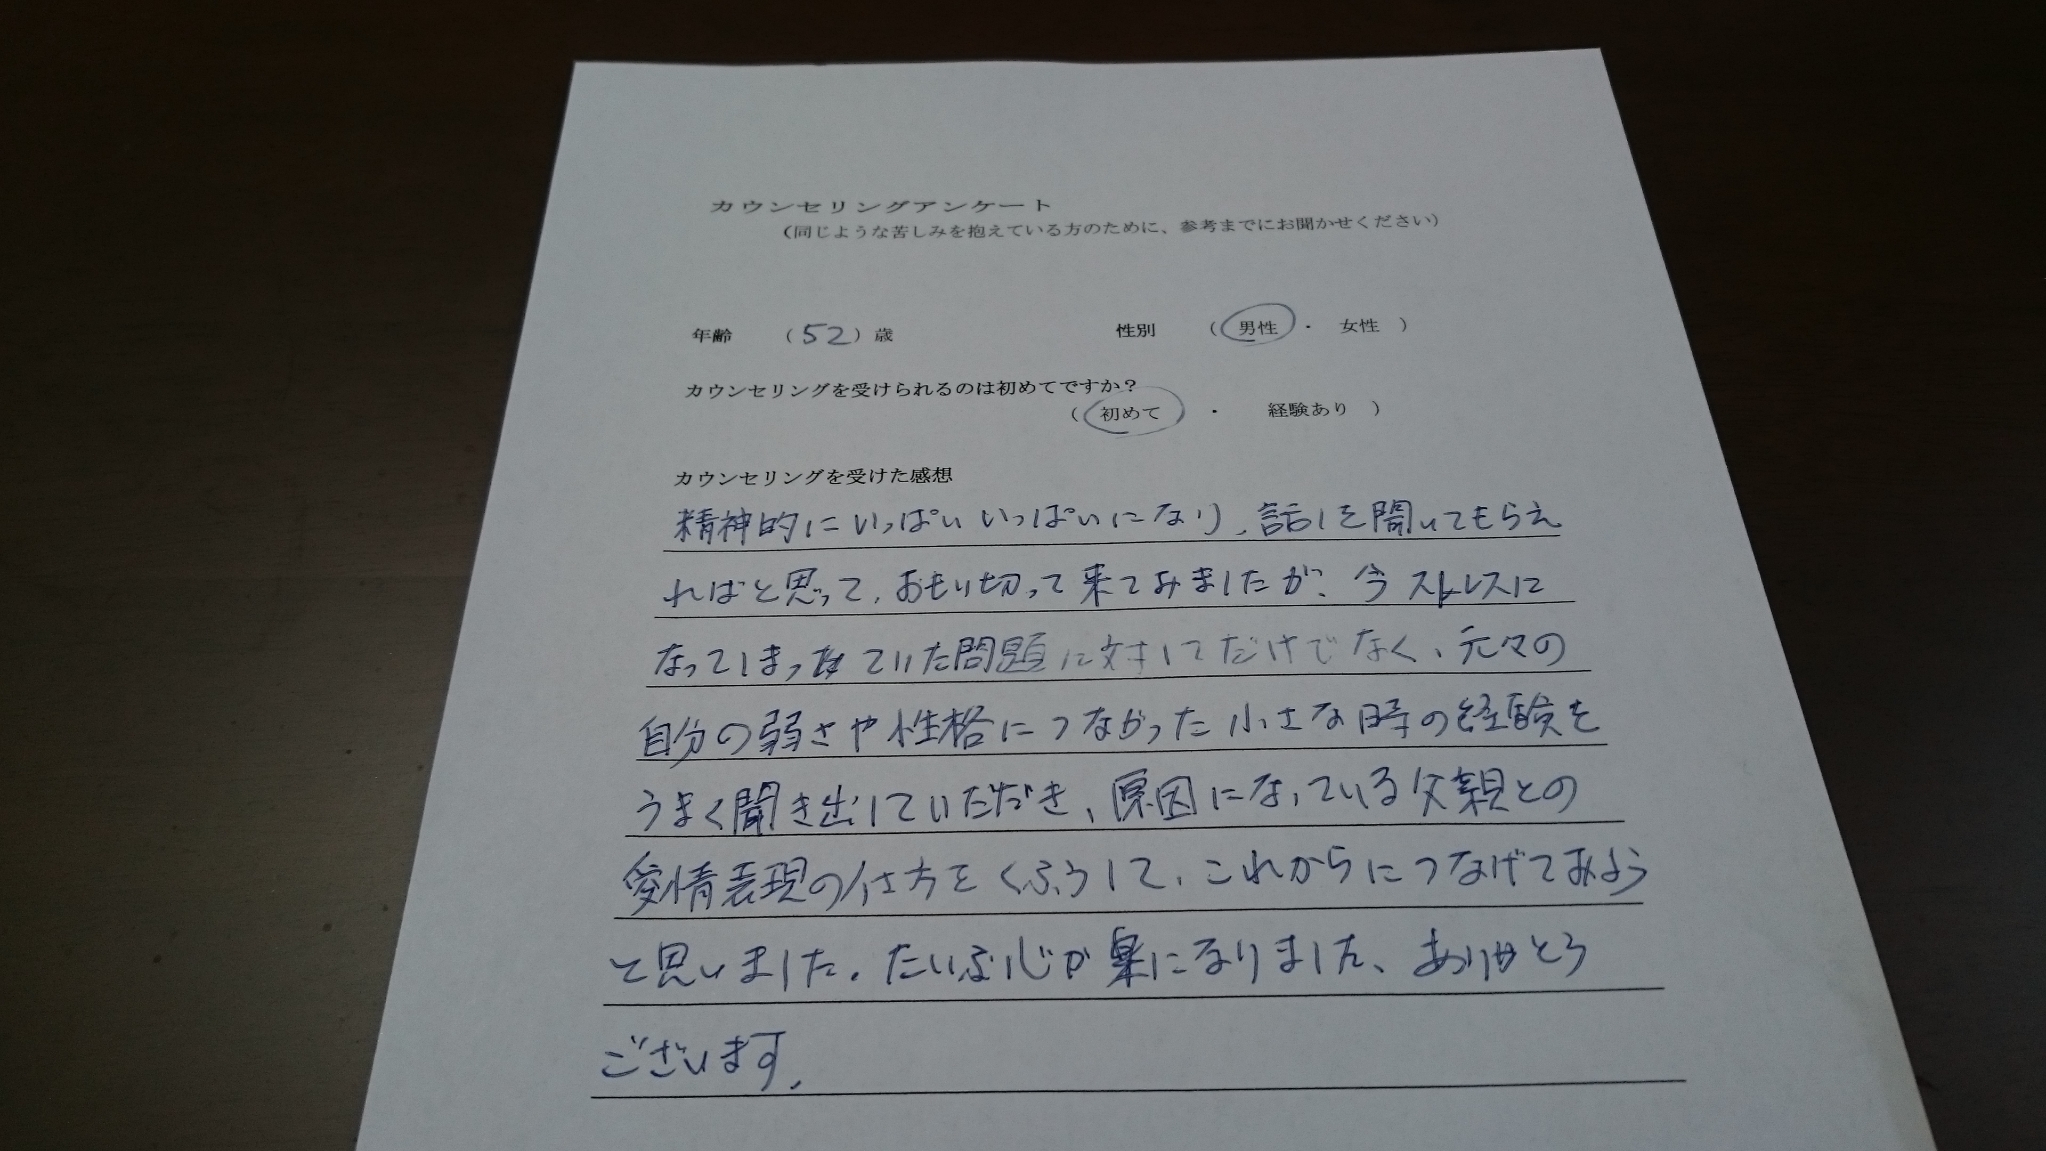 カウンセリングアンケート
(同じような苦しみを抱えている方のために、参考までにお聞かせください)
年齢 (52)歳 性別 (男性・女性)
カウンセリングを受けられるのは初めてですか?
(初めて・経験あり)
カウンセリングを受けた感想
精神的にいっぱいいっぱいになり、話しを聞いてもらえ
ればと思って、おもい切って来てみましたが、今ストレスに
なってしまっていた問題に対してだけでなく、元々の
自分の弱さや性格につながった小さな時の経験を
うまく聞き出していただき、原因になっている父親との
愛情表現の仕方をくふうして、これからにつなげてみよう
と思いました。だいぶ心が楽になりました、ありがとう
ございます。